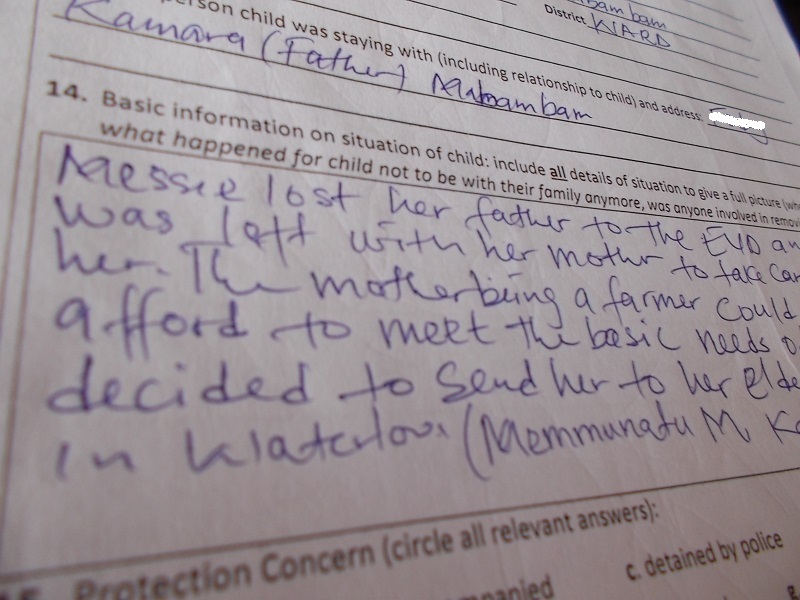 bambam
District WARD
person child was staying with (including relationship to child) and address:
Kamara (Father) Mabambam
14. Basic information on situation of child: include all details of situation to give a full picture (whe
what happened for child not to be with their family anymore, was anyone involved in remov
Messie lost her father to the EVD an
was left with her mother to take car
her. The mother being a farmer could
afford to meet the basic needs o
decided to send her to her elde
in Waterloo. (Memmunatu M Ka
Protection Concern (circle all relevant answers):
c. detained by police
mpanied
g.